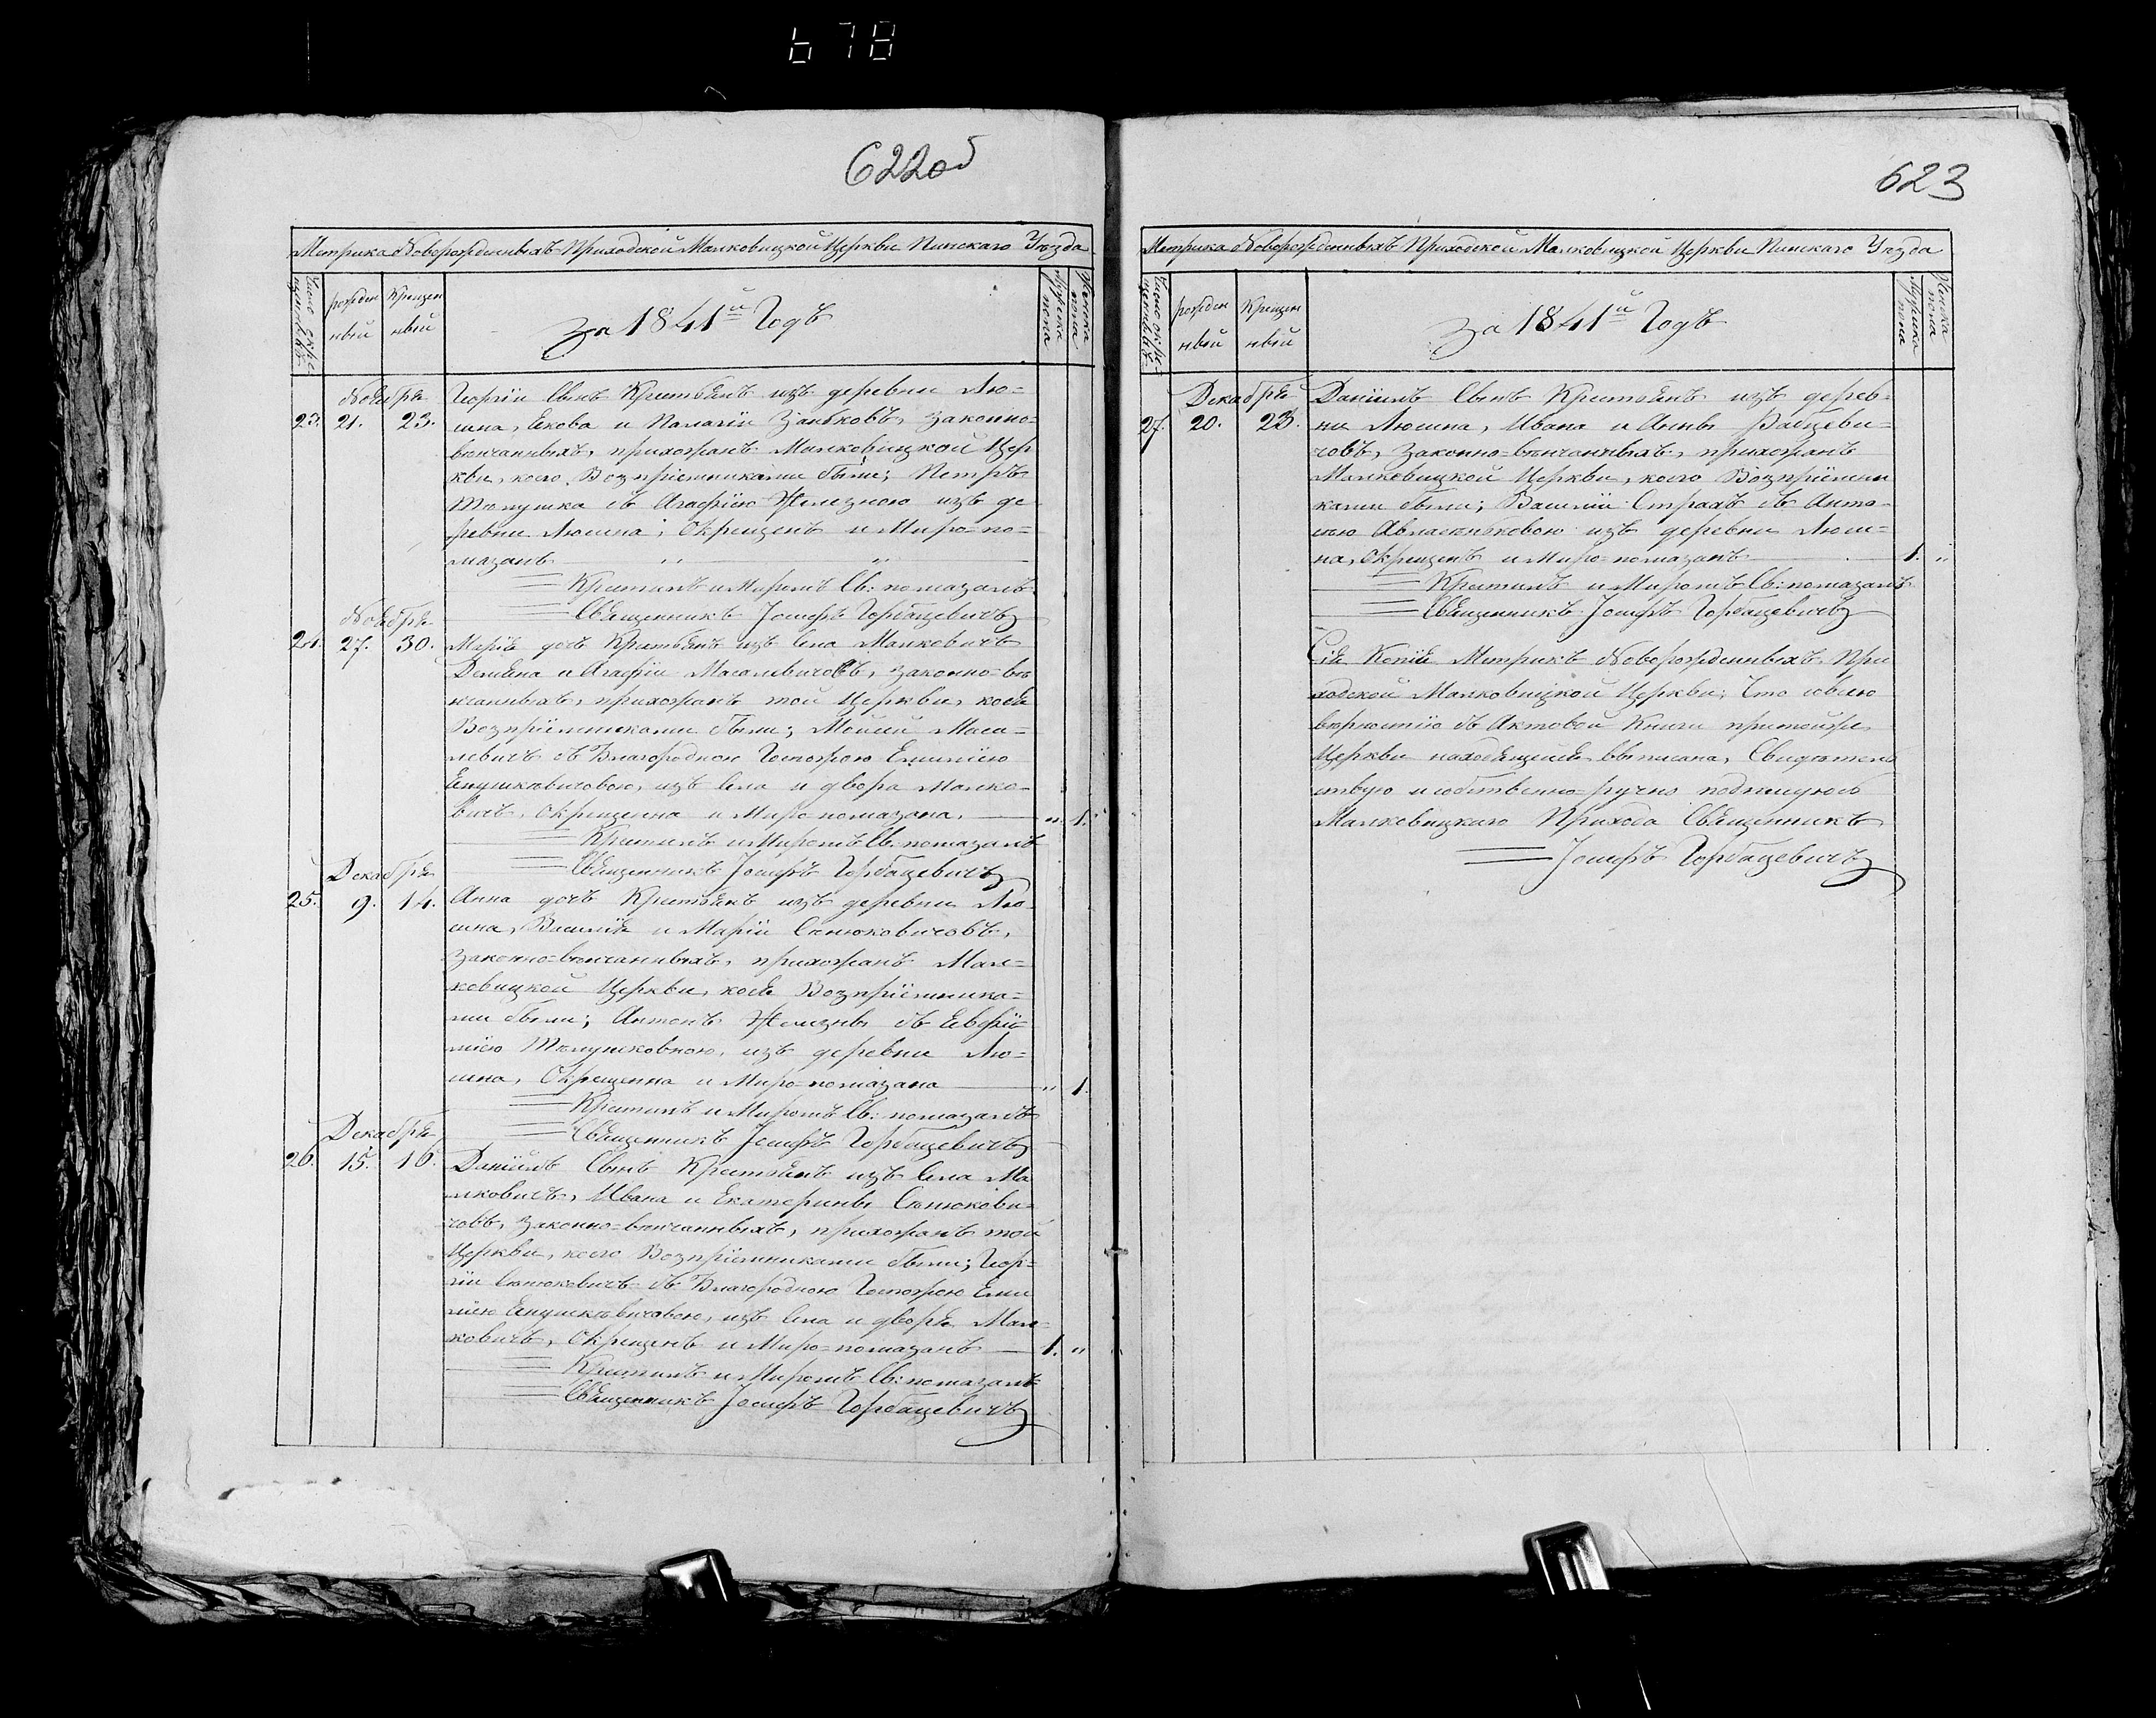 678
622об
Метрика Новорожденныхъ Приходской Малковицкой Церкви Пинскаго Уѣзда
рожден
ный
Крещен
ный
За 1841й Годъ
мужеска
пола
женска
пола
Ноября
23. 21. 23.
Георгій Сынъ Крестьянъ изъ деревни Лю=
шна, Якова и Палагіи Заньковъ, Законно=
вѣнчанныхъ, прихожанъ Малковицкой Цер
кви, коего Возпріемниками были; Петръ
съ Агафіею Железною изъ де
ревни Люшна; Окрещенъ и Миро=по=
мазанъ
Крестилъ и Миромъ Св: помазалъ
Священникъ Іосифъ Горбацевичъ
Ноября
24. 27. 30.
Марія дочь Крестьянъ изъ Села Малковичъ
Демьяна и Агафіи Масалевичовъ, законно=вѣ
нчанныхъ, прихожанъ той Церкви, коея
Возпріемниками были; Моисей Маса=
левичъ съ Благородною Госпожею Емиліею
изъ Села и двора Малко=
вичъ, Окрещенна и Миро помазана. " 1.
Крестилъ и Миромъ Св: помазалъ
Священникъ Іосифъ Горбацевичъ
Декабря
25. 9. 14.
Анна дочь Крестьянъ изъ деревни Лю
шна, Василія и Маріи Сенюковичовъ,
Законно=вѣнчанныхъ, прихожанъ Мал=
ковицкой Церкви, коея Возпріемника=
ми были; Антонъ Железны съ Евфи=
міею изъ деревни Лю=
шна, Окрещенна и Миро=помазана " 1.
Крестилъ и Миромъ Св: помазалъ
Священникъ Іосифъ Горбацевичъ
Декабря
26. 15. 16.
Даніилъ Сынъ Крестьянъ изъ Села Ма
лковичъ, Ивана и Екатерины Сенюкови=
човъ, Законно=вѣнчанныхъ, прихожанъ той
Церкви, коего Возпріемниками были; Геор=
гій Сенюковичъ съ Благородною Госпожею Еми
ліею изъ Села и дворя Мал=
ковичъ, Окрещенъ и Миро=помазанъ 1. "
Крестилъ и Миромъ Св: помазалъ
Священникъ Іосифъ Горбацевичъ
623
Метрика Новорожденныхъ Приходской Малковицкой Церкви Пинскаго Уѣзда
рожден
ный
Крещен
ный
За 1841й Годъ
мужеска
пола
женска
пола
Декабря
27. 20. 23.
Даніилъ Сынъ Крестьянъ изъ дерев=
ни Люшна, Ивана и Анны Вабщеви=
човъ, Законно=вѣнчанныхъ, прихожанъ
Малковицкой Церкви, коего Возпріемни
ками были; Василій Страхъ съ Анто=
ніею изъ деревни Люш=
на, Окрещенъ и Миро=помазанъ 1. "
Крестилъ и Миромъ Св: помазалъ
Священникъ Іосифъ Горбацевичъ
Сія Копія Метрикъ Новорожденныхъ При
ходской Малковицкой Церкви, Что совсею
вѣрностію съ Актовой Книги притойже
Церкви находящейся выписана, Свидѣтель
ствую и собственно=ручно подписуюсь
Малковицкаго Прихода Священникъ
Іосифъ Горбацевичъ